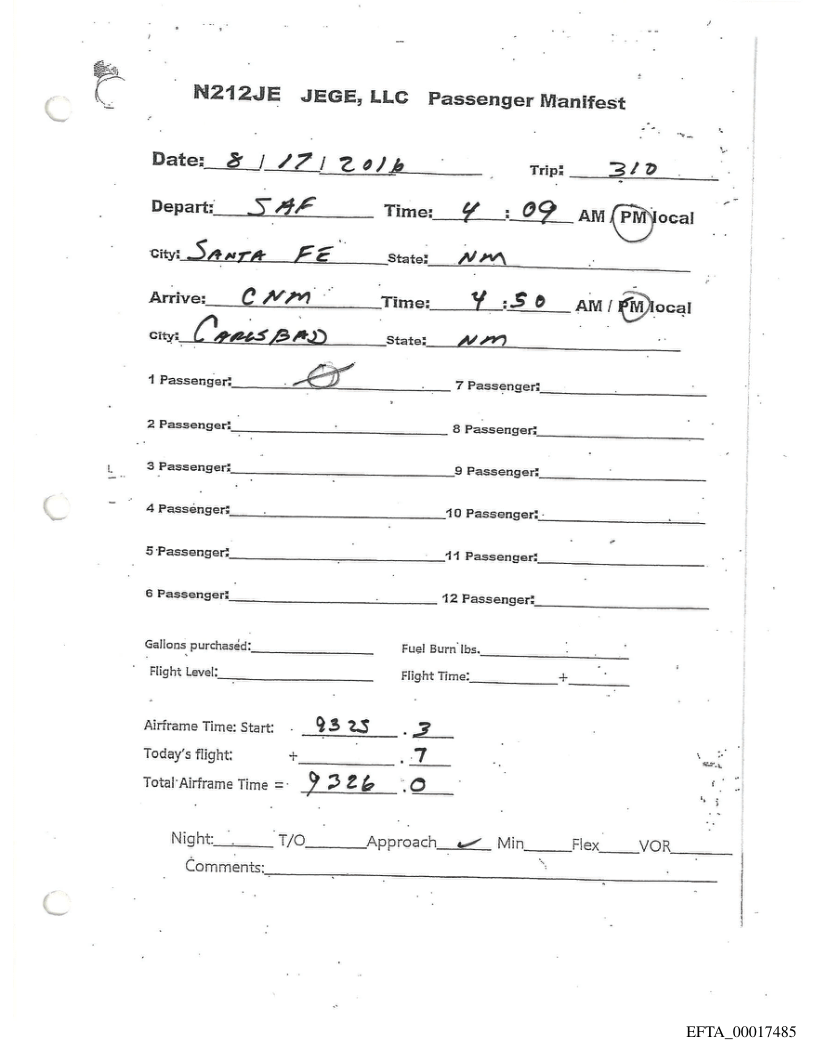 N212JE JEGE, LLC Passenger Manifest
Date: 8 / 17 / 2016 Trip: 310
Depart: SAF Time: 4 : 09 AM / PM local
City: SANTA FE State: NM
Arrive: CNM Time: 4 : 50 AM / PM local
City: CARLSBAD State: NM
1 Passenger: 7 Passenger:
2 Passenger: 8 Passenger:
3 Passenger: 9 Passenger:
4 Passenger: 10 Passenger:
5 Passenger: 11 Passenger:
6 Passenger: 12 Passenger:
Gallons purchased: Fuel Burn lbs.
Flight Level: Flight Time: +
Airframe Time: Start: 9325 . 3
Today's flight: + . 7
Total Airframe Time = 9326 . 0
Night: T/O Approach ✓ Min Flex VOR
Comments:
EFTA_00017485